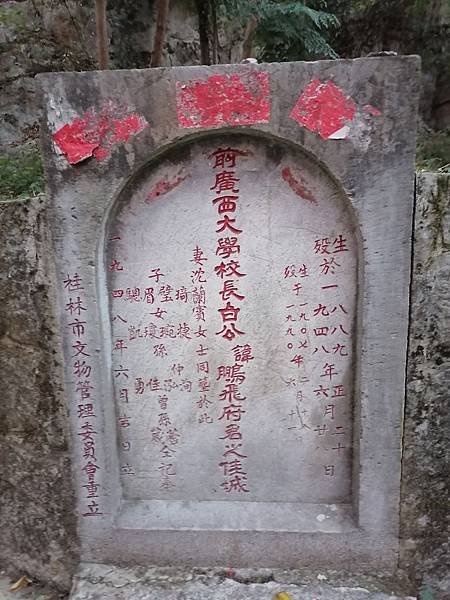 生於一八八九年正月二十日
殁於一九四八年六月廿八日
生于一九〇七年二月十八
殁于一九九〇年六月十一
前廣西大學校長白公諱鵬飛府君之佳城
妻沈蘭賓女士同塟於此
子
琦 捷 仲
璧 琬 泓
女 孫 曾孫
眉 瓊 佳
驄 凱 勇
仝記
一九四八年六月 日立
桂林市文物管理委員會重立